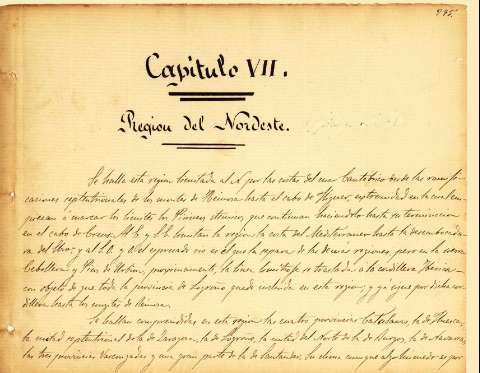 995.
Capítulo VII.
Region del Nordeste.
Se halla esta region limitada al N. por las costas del mar Cantábrico desde las ramifi-
caciones septentrionales de los montes de Reinosa hasta el cabo de Higuer, extremidad en la cual em-
piezan á marcar los límites los Pirineos que continuan haciendolo hasta su terminacion
en el cabo de Creus. Al E. y S.E. limitan la region la costa del Mediterraneo hasta la desemboca-
ra del Ebro; y al S.O. y O. el espresado rio es el que la separa de las demás regiones, pero en la sierra
Cebollera y Pico de Urbion, proximamente, la linea limítrofe se traslada a la cordillera Ibérica
con objeto de que toda la provincia de Logroño quede incluida en esta region, y ya sigue por dicha cor-
dillera hasta los montes de Reinosa.
Se hallan comprendidas en esta region las cuatro provincias Catalanas, la de Huesca,
la mitad septentrional de la de Zaragoza, la de Logroño, la mitad del Norte de la de Burgos, la de Navarra,
las tres provincias Vascongadas y una gran parte de la de Santander. Su clima aunque algo humedo es por